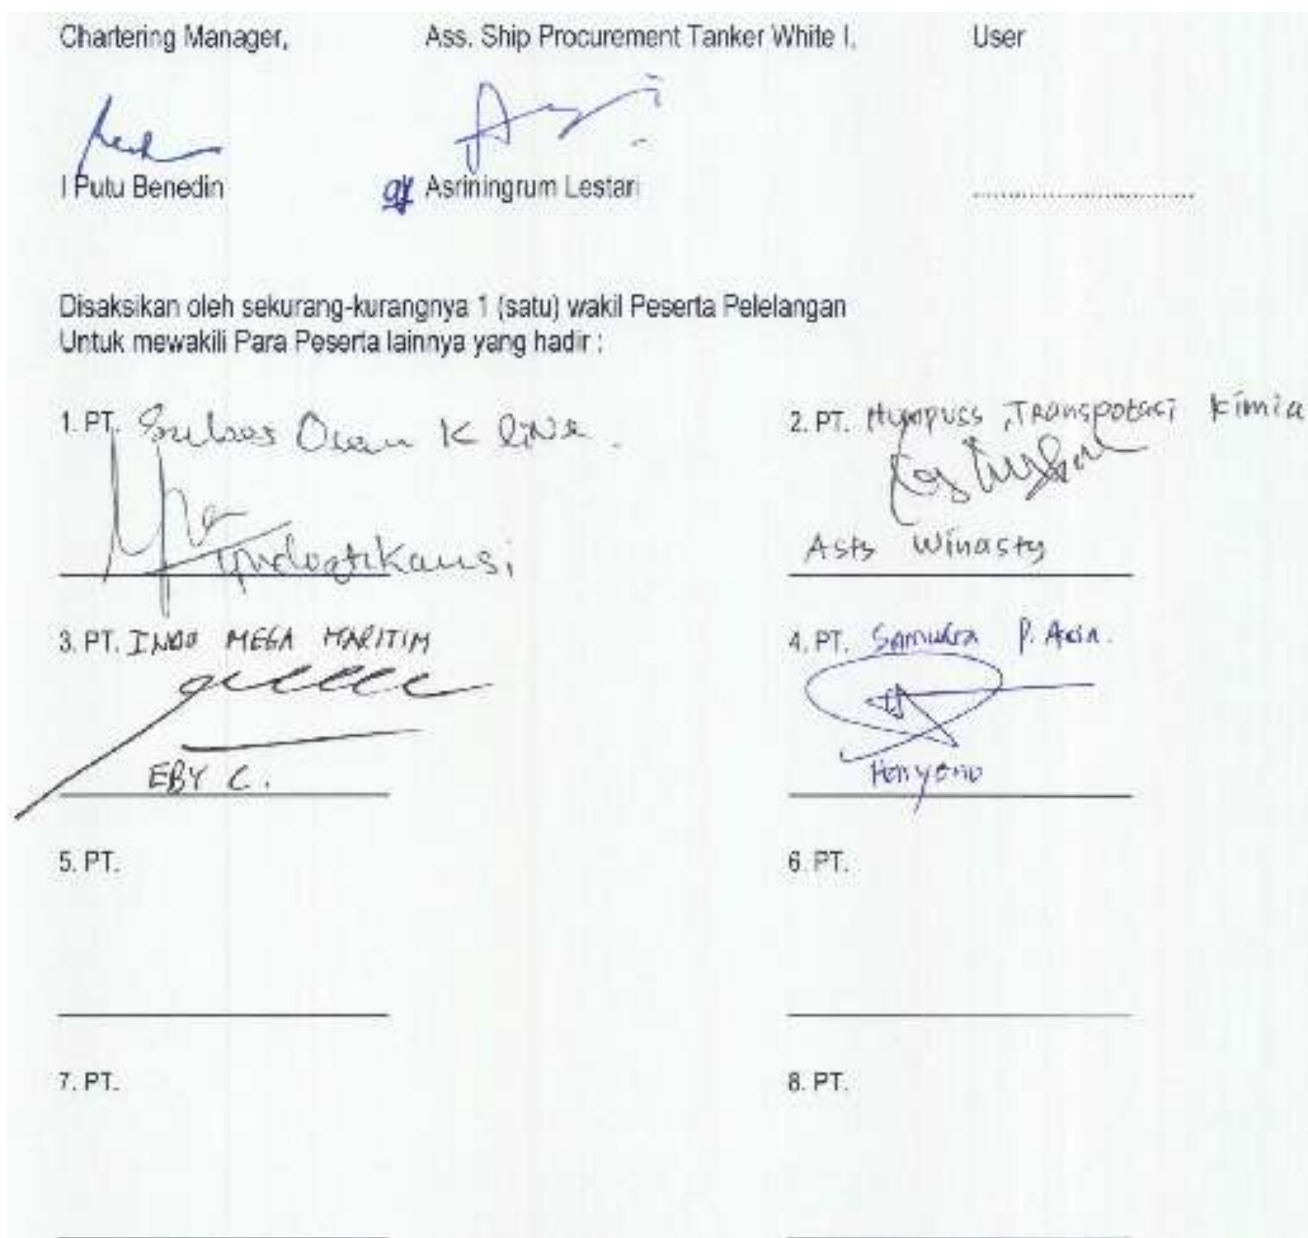 Chartering Manager, Ass. Ship Procurement Tanker White I, User
I Putu Benedin Asriningrum Lestari ....................................
Disaksikan oleh sekurang-kurangnya 1 (satu) wakil Peserta Pelelangan
Untuk mewakili Para Peserta lainnya yang hadir :
1. PT. Ocean K Line. 2. PT. Humpuss Transpotasi Kimia
Winasty
3. PT. INDO MEGA MARITIM 4. PT. Samudra P. Asia.
EBY C. Haryono
5. PT. 6. PT.
7. PT. 8. PT.